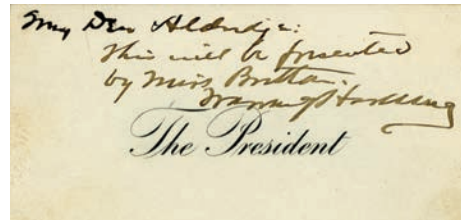 My Dear Aldridge:
This will be presented
by Miss Britton.
Warren G Harding
The President